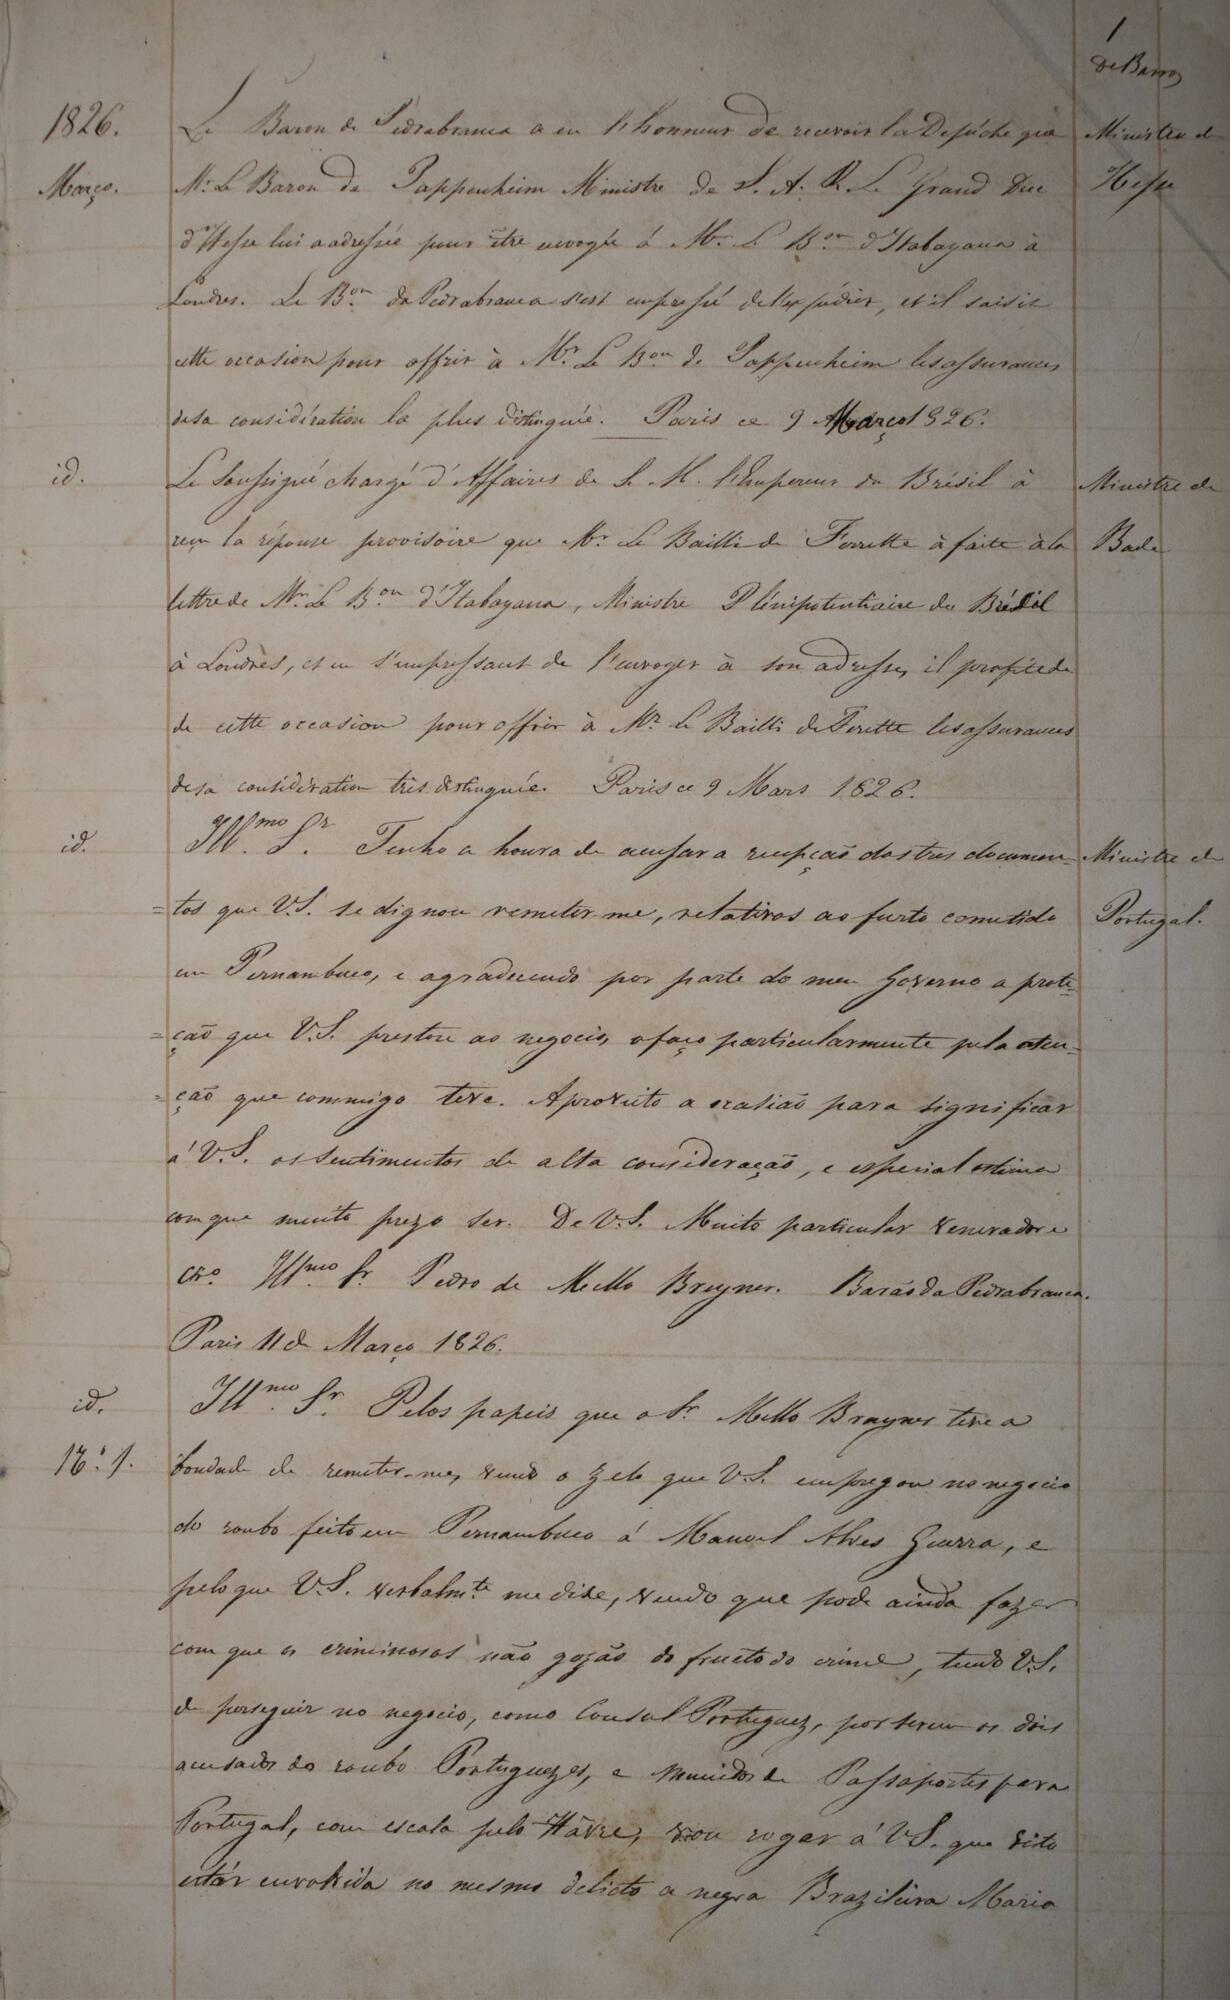 1
de Barros
1826.
Março.
Le Baron de Pedrabranca a eu l'honneur de recevoir la Depêche que
Mr. Le Baron de Pappenheim Ministre de S. A. R. Le Grand Duc
d'Hesse lui a adressée pour être envoyée à Mr. Le Bon. d'Itabayana à
Londres. Le Bon. da Pedrabranca s'est empressé de l'expédier, et il saisit
cette occasion pour offrir à Mr. Le Bon. de Pappenheim les assurances
de sa considération la plus distinguée. Paris ce 9 Março 1826.
Ministre de
Hesse
id.
Le Soussigné chargé d'Affaires de S. M. l'Empereur du Brésil à
reçu la réponse provisoire que Mr. Le Bailli de Ferrette à faite à la
lettre de Mr. Le Bon. d'Itabayana, Ministre Plénipotentiaire du Brésil
à Londrès, et en s'empressant de l'envoyer à son adresse, il profite de
de cette occasion pour offrir à Mr. Le Bailli de Ferette les assurances
de sa considération très distinguée. Paris ce 9 Mars 1826.
Ministre de
Bade
id.
Illmo. Sr. Tenho a honra de accusar a recepção dos tres documen-
=tos que V.S. se dignou remeter-me, relativos ao furto cometido
em Pernambuco, e agradecendo por parte do meu Governo a prote-
=ção que V.S. prestou ao negocio, o faço particularmente pela aten-
=ção que commigo teve. Aproveito a ocasião para significar
á V.S. os sentimentos de alta consideração, e especial estima
com que muito prezo ser. De V.S. Muito particular venerador e
cro. Illmo. Sr. Pedro de Mello Breyner. Barão da Pedrabranca.
Paris 11 de Março 1826.
Ministre de
Portugal.
id.
Nº. 1.
Illmo. Sr. Pelos papeis que o Sr. Mello Brayner teve a
bondade de remeter-me, vendo o zelo que V.S. empregou no negocio
do roubo feito em Pernambuco á Manoel Alves Guerra, e
pelo que V.S. verbalmte. me disse, vendo que pode ainda fazer
com que os criminosos não gozão do fructo do crime, tendo V.S.
de perseguir no negocio, como Consul Portuguez, por serem os dois
acusados do roubo Portuguezes, e munidos de Passaportes para
Portugal, com escala pelo Hâvre, vou rogar á V.S. que visto
estár envolvida no mesmo delicto a negra Brazileira Maria